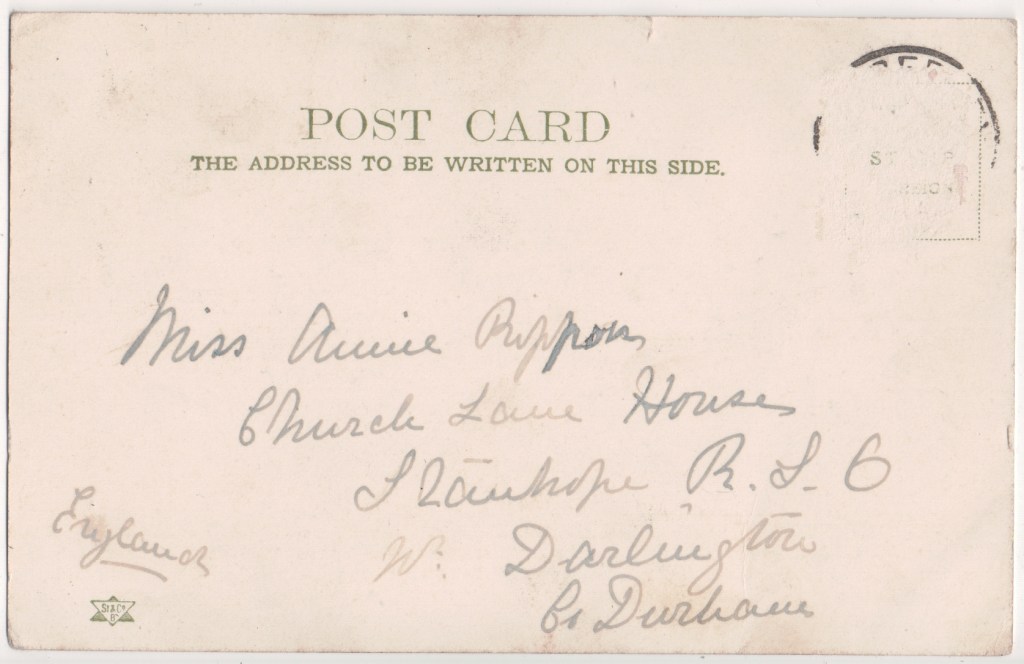 POST CARD
THE ADDRESS TO BE WRITTEN ON THIS SIDE.
Miss Annie Rippon
Church Lane House
Stanhope R.S.O
W. Darlington
Co Durham
England